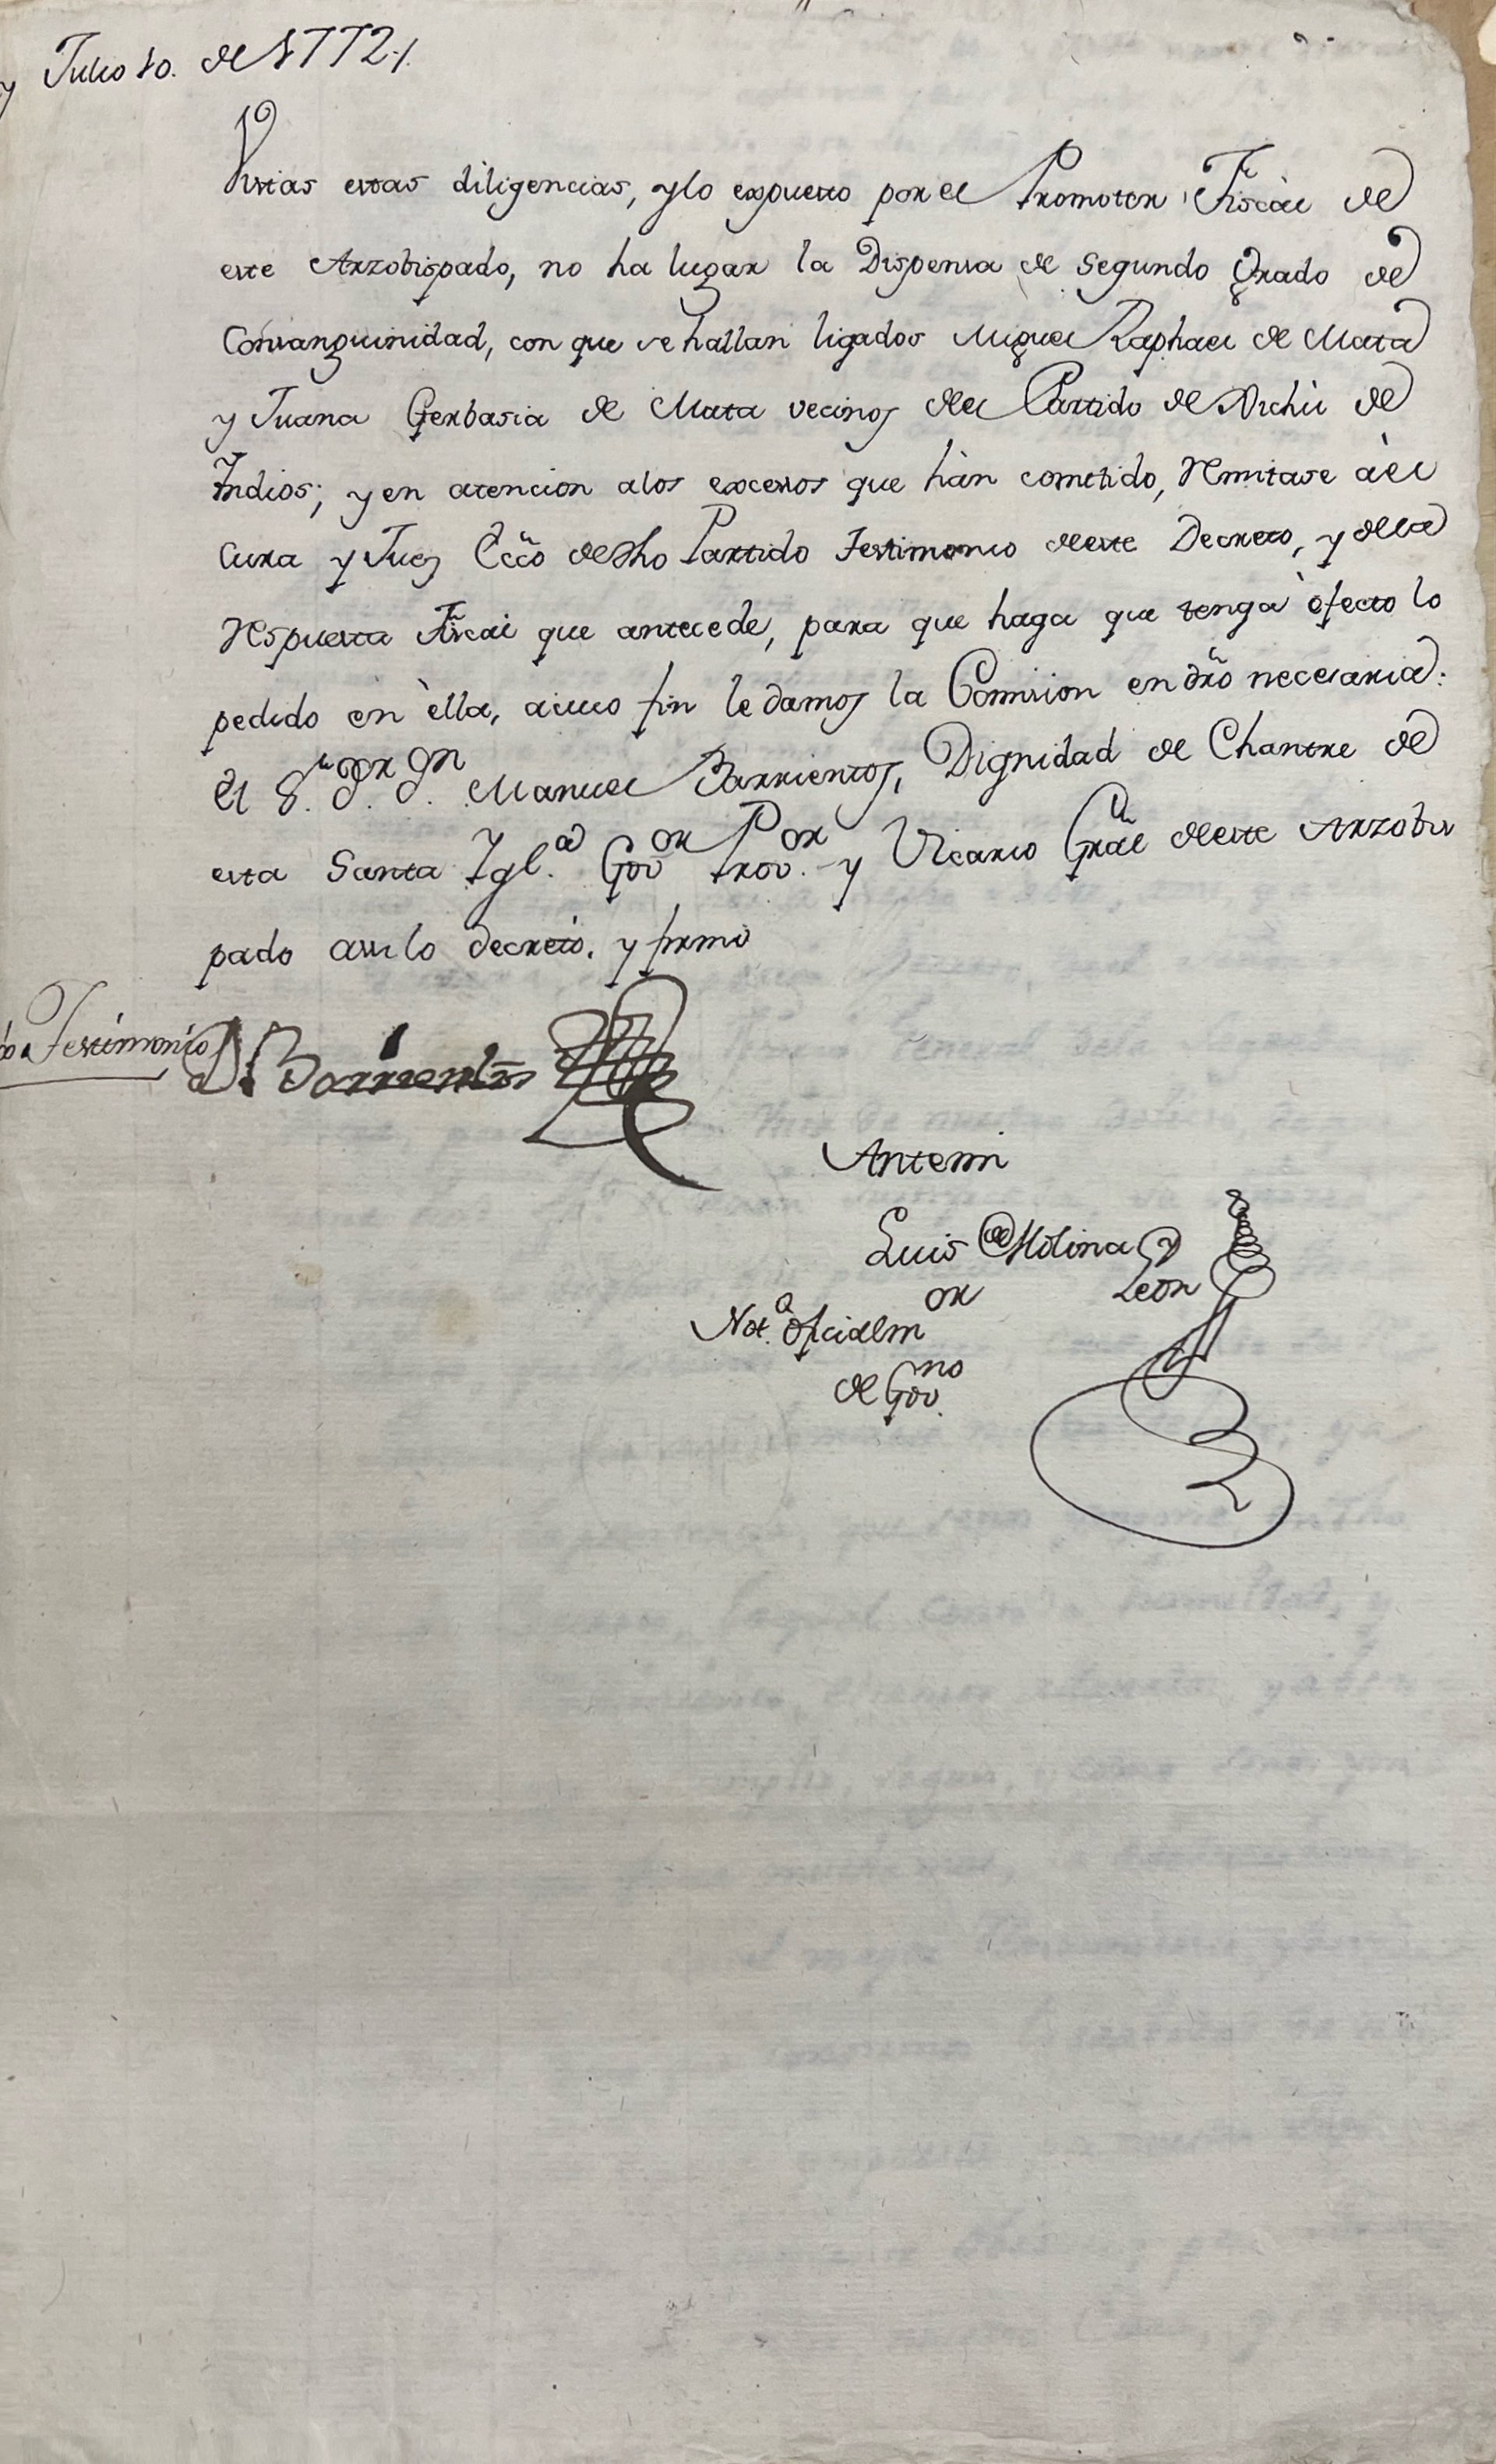 y Julio 10. de 1772,,
Vistas estas diligencias, y lo expuesto por el Promotor Fiscàl de
este Arzobispado, no ha lugar la Dispensa de Segundo Grado de
Consanguinidad, con que se hallan ligados Miguel Raphael de Mata
y Juana Gerbasia de Mata vecinos del Partido de Vichù de
Indios; y en atencion a los excessos que hàn cometido, Remitase àel
Cura y Juez Ecc̃o de dho Partido Testimonio de este Decreto, y de la
Respuesta Fiscal que antecede, para que haga que tenga efecto lo
pedido en èlla, acuio fin le damos la Comision en dr̃o necesaria:
El S.r D.r D.n Manuel Barrientos, Dignidad de Chantre de
esta Santa Igl.a Gov.or Prov.or y Vicario Gral de este Arzobis
pado assi lo decretò, y firmò
Testimonio
D.r Barrientos
Antemi
Luis de Molina y
Leon
Not.o oficial m.or
de Gov.no